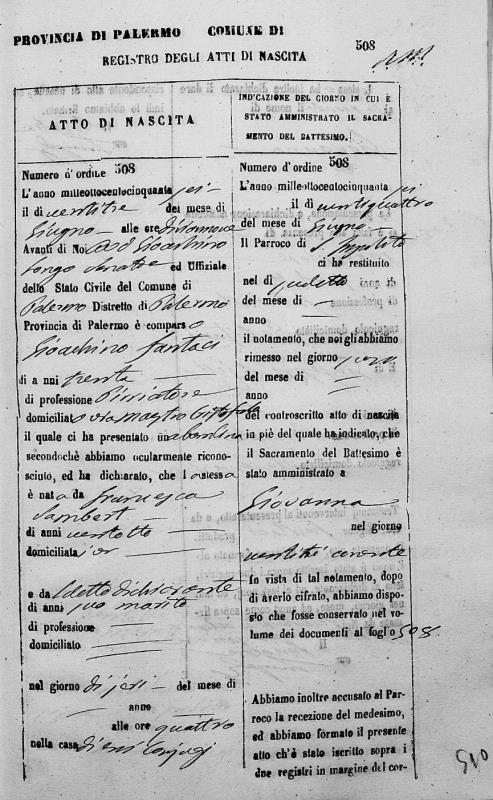 PROVINCIA DI PALERMO COMUNE DI
508
REGISTRO DEGLI ATTI DI NASCITA
ATTO DI NASCITA
Numero d'ordine 508
L'anno milleottocentocinquanta sei
il dì ventitre del mese di
Giugno alle ore
Avanti di Noi Gioachino
Longo Senatore ed Uffiziale
dello Stato Civile del Comune di
Palermo Distretto di Palermo
Provincia di Palermo è comparso
Gioachino Fantaci
di anni trenta
di professione
domiciliato via Mastro Cristofalo
il quale ci ha presentato una bambina
secondochè abbiamo ocularmente ricono-
sciuto, ed ha dichiarato, che la stessa
è nata da Francesca
Lambert
di anni ventotto
domiciliata ivi
e da detto dichiarante
di anni suo marito
di professione
domiciliato
nel giorno di jeri del mese di
anno
alle ore quattro
nella casa di essi conjugi
INDICAZIONE DEL GIORNO IN CUI È
STATO AMMINISTRATO IL SACRA-
MENTO DEL BATTESIMO.
Numero d'ordine 508
L'anno milleottocentocinquanta sei
il dì ventiquattro
del mese di Giugno
Il Parroco di S. Ippolito
ci ha restituito
nel dì sudetto
del mese di
anno
il notamento, che noi gli abbiamo
rimesso nel giorno
del mese di
anno
del controscritto atto di nascita
in piè del quale ha indicato, che
il Sacramento del Battesimo è
stato amministrato a
Giovanna
nel giorno
ventitre corrente
In vista di tal notamento, dopo
di averlo cifrato, abbiamo dispo-
sto che fosse conservato nel vo-
lume dei documenti al foglio 508
Abbiamo inoltre accusato al Par-
roco la recezione del medesimo,
ed abbiamo formato il presente
atto ch'è stato iscritto sopra i
due registri in margine del cor-
510